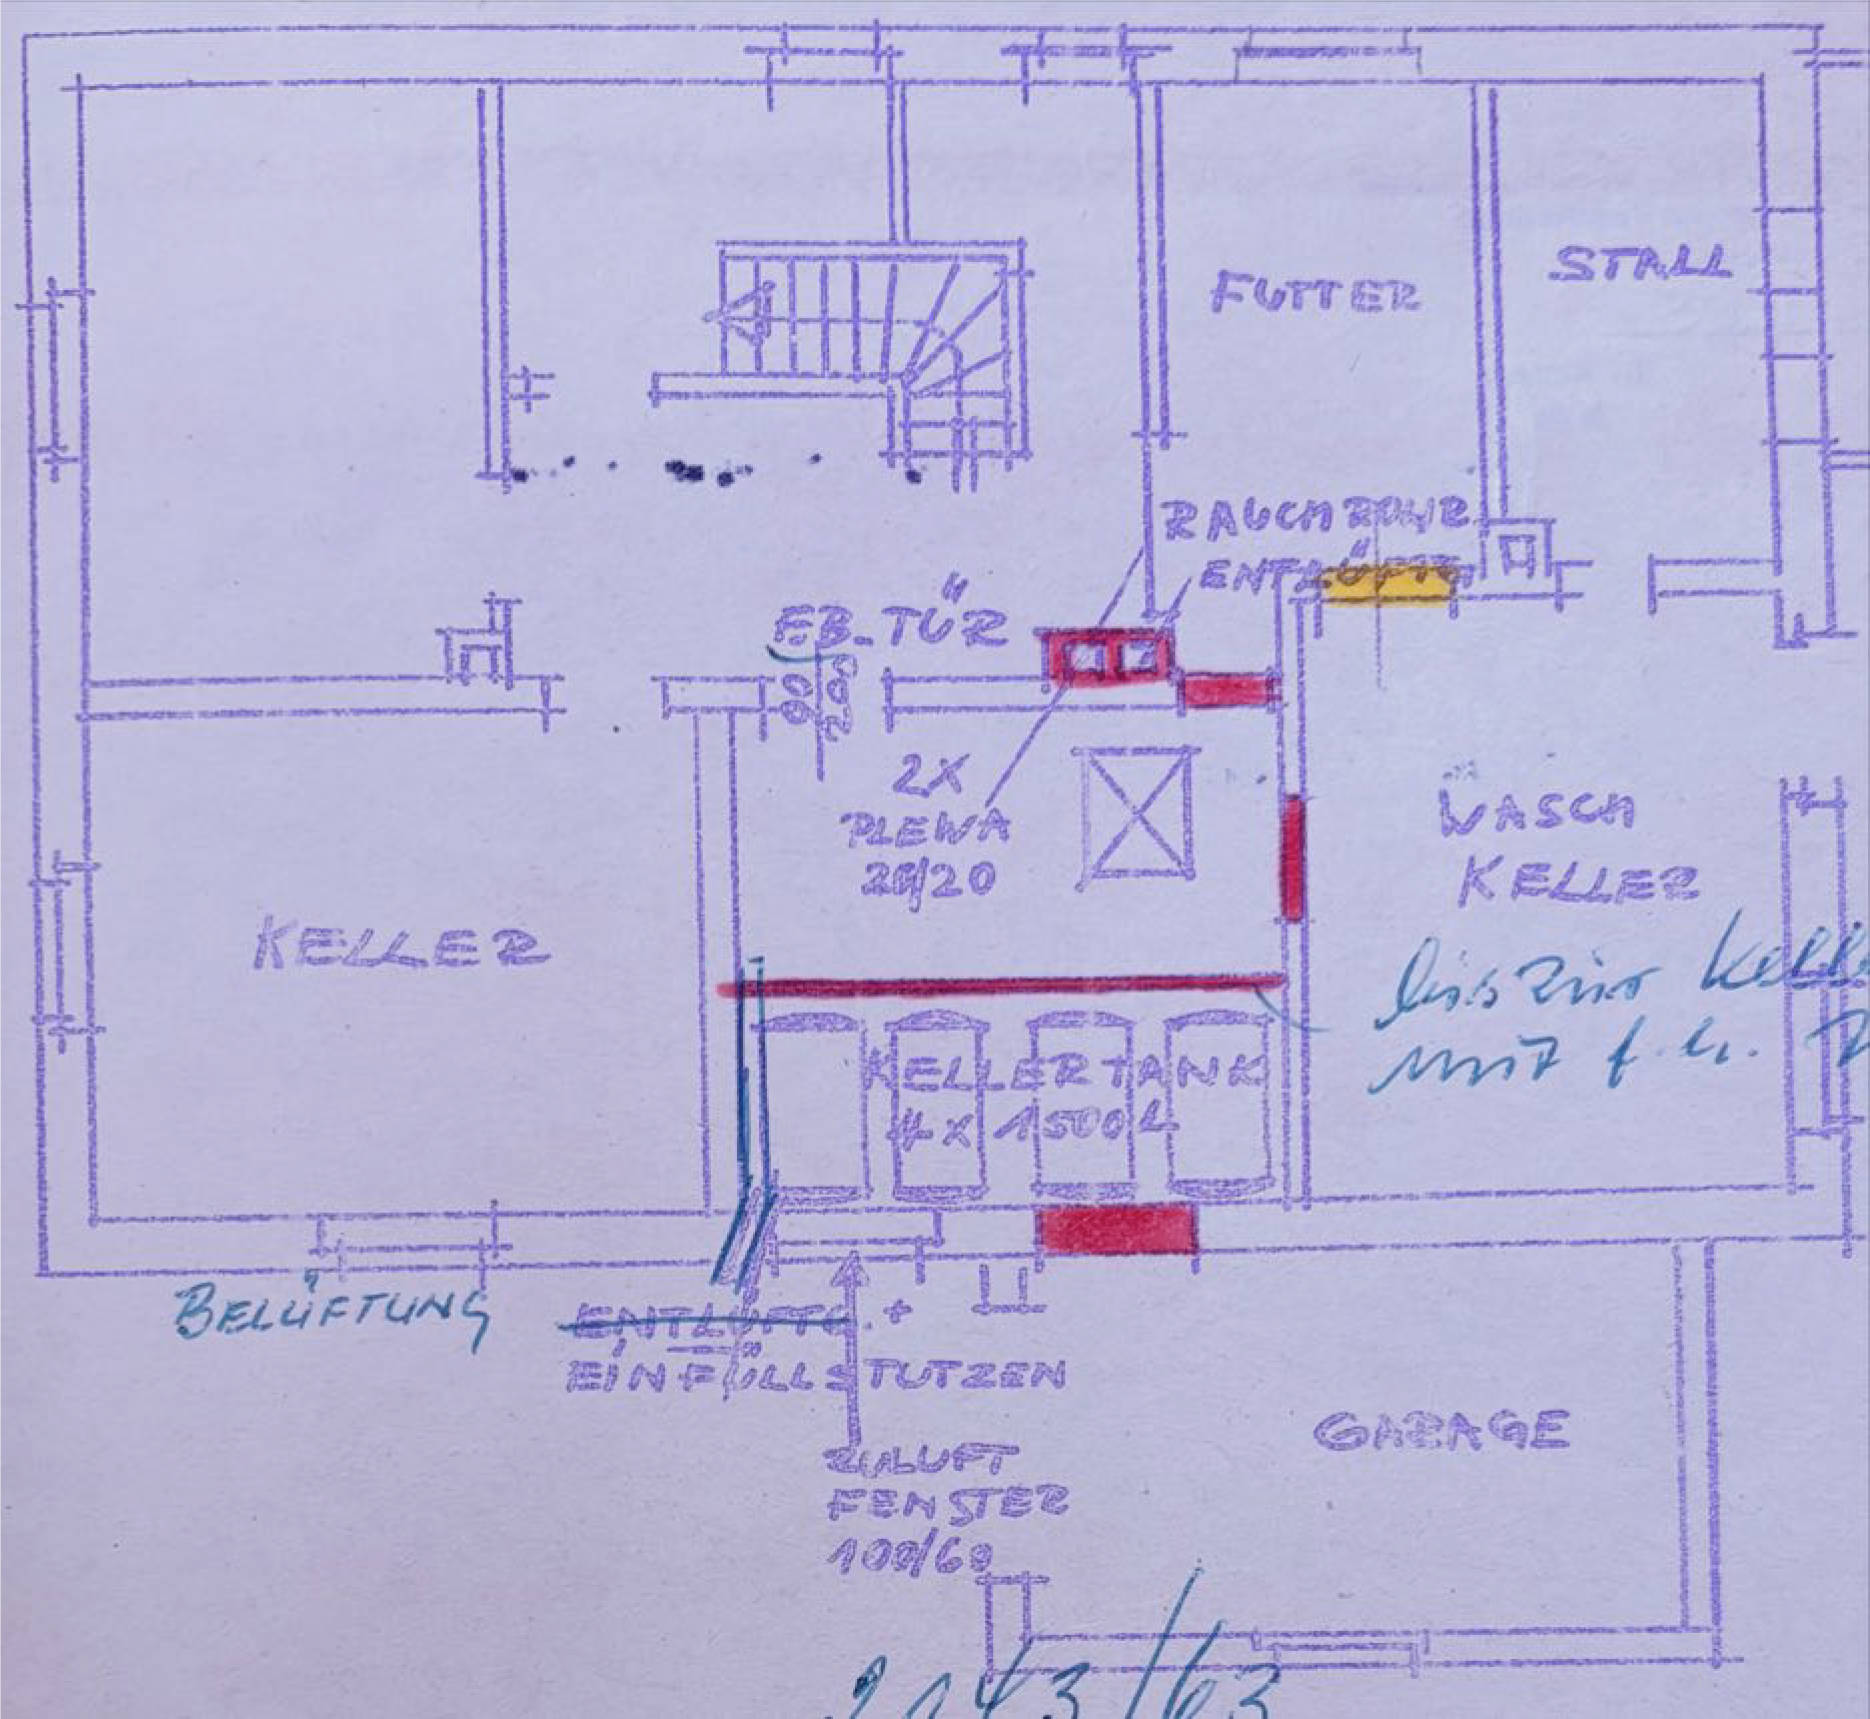 STALL
FUTTER
RAUCHROHR
ENTLÜFTG.
FB-TÜR
90
200
2X
PLEWA
20/20
WASCH
KELLER
KELLER
bis zur Kelle
mit f. h.
KELLERTANK
4 x 1500 L
BELÜFTUNG
ENTLÜFTG. +
EINFÜLLSTUTZEN
ZULUFT
FENSTER
100/60
GARAGE
2143/63